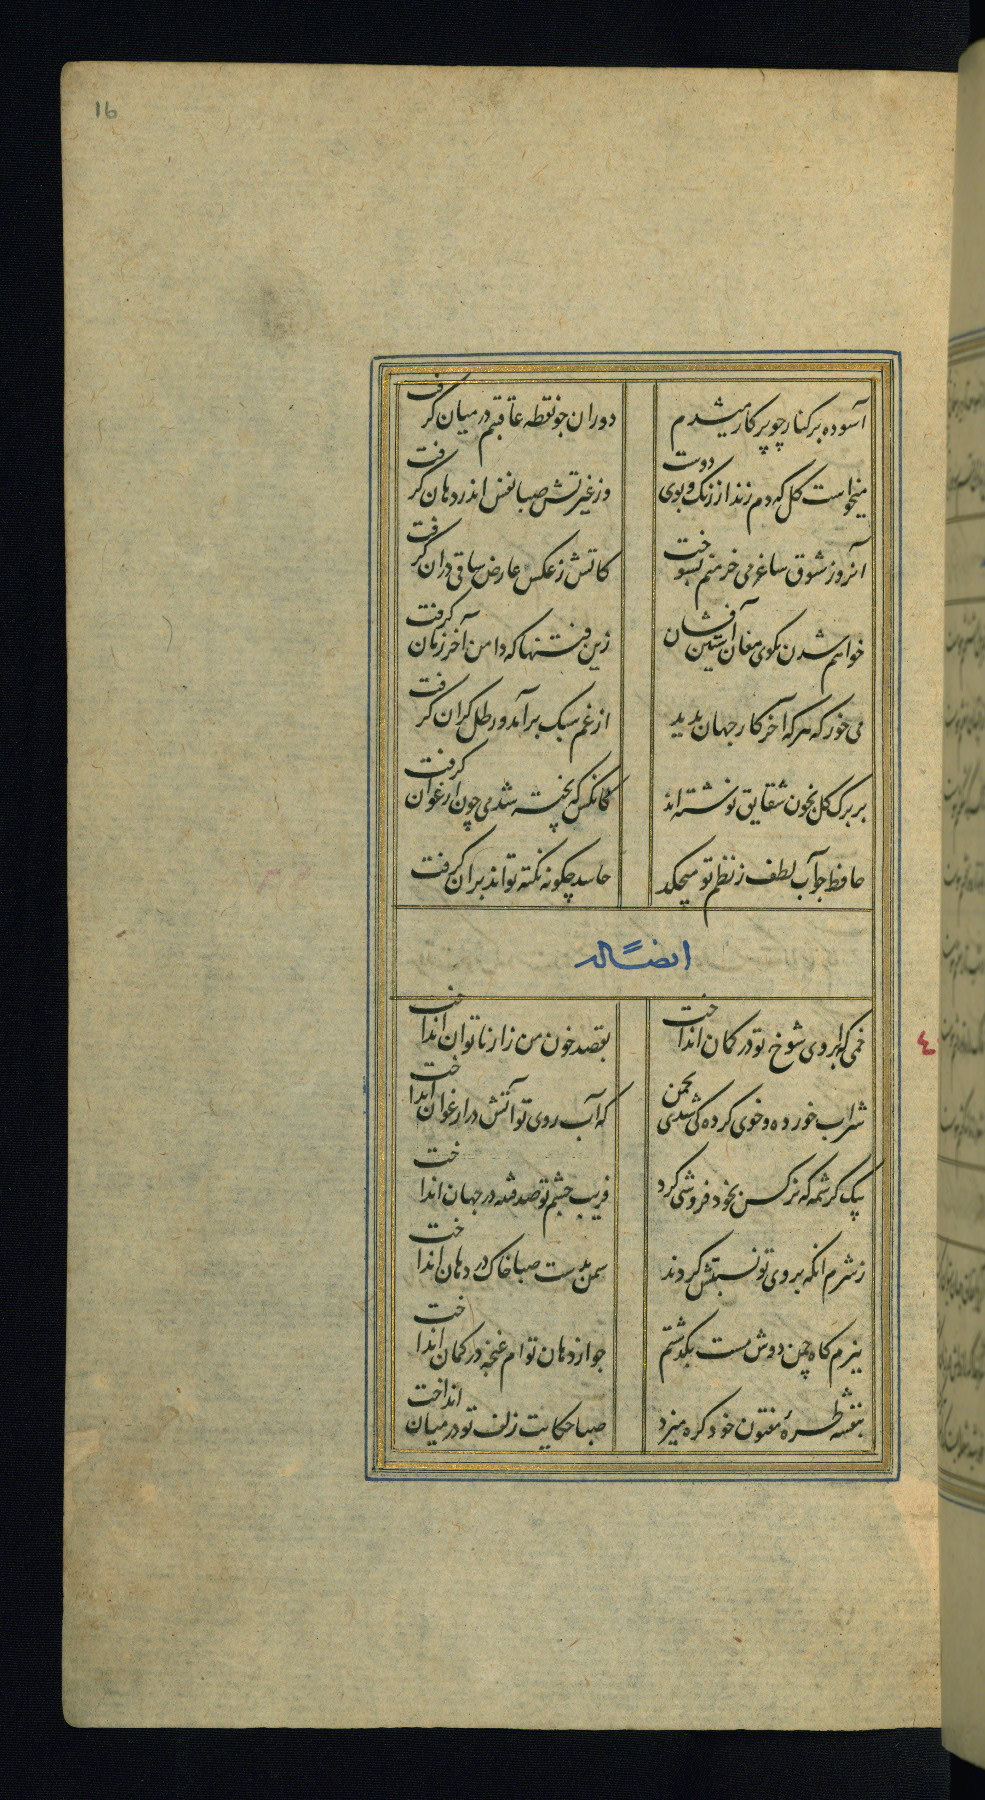 16
آسوده بر کنار چو پرکار میشدم
دوران جو نقطه عاقبتم در میان کرفت
میخواست کل که دم زند از رنک و بوی دوست
وز غیرتش صبا نفس اندر دهان کرفت
آنروز شوق ساغر می خرمنم بسوخت
کاتش ز عکس عارض ساقی دران کرفت
خواهم شدن بکوی مغان آستین فشان
زین فتنها که دامن آخر زمان کرفت
می خور که هر که آخر کار جهان بدید
از غم سبک برآمد و رطل کران کرفت
بر برک کل بخون شقایق نوشته اند
کانکس که پخته شد می چون ارغوان کرفت
حافظ جو آب لطف ز نظم تو میچکد
حاسد چکونه نکته تواند بران کرفت
ایضاً له
خمی که ابروی شوخ تو در کمان انداخت
بقصد خون من زار ناتوان انداخت
شراب خورده و خوی کرده کی شدی بچمن
که آب روی تو آتش در ارغوان انداخت
بیک کرشمه که نرکس بخود فروشی کرد
فریب جشم تو صد فتنه در جهان انداخت
ز شرم انکه بروی تو نسبتش کردند
سمن بدست صبا خاک در دهان انداخت
ببزم کاه چمن دوش مست بکذشتم
جو از دهان توام غنچه در کمان انداخت
بنفشه طره مفتون خود کره میزد
صبا حکایت زلف تو در میان انداخت
٤